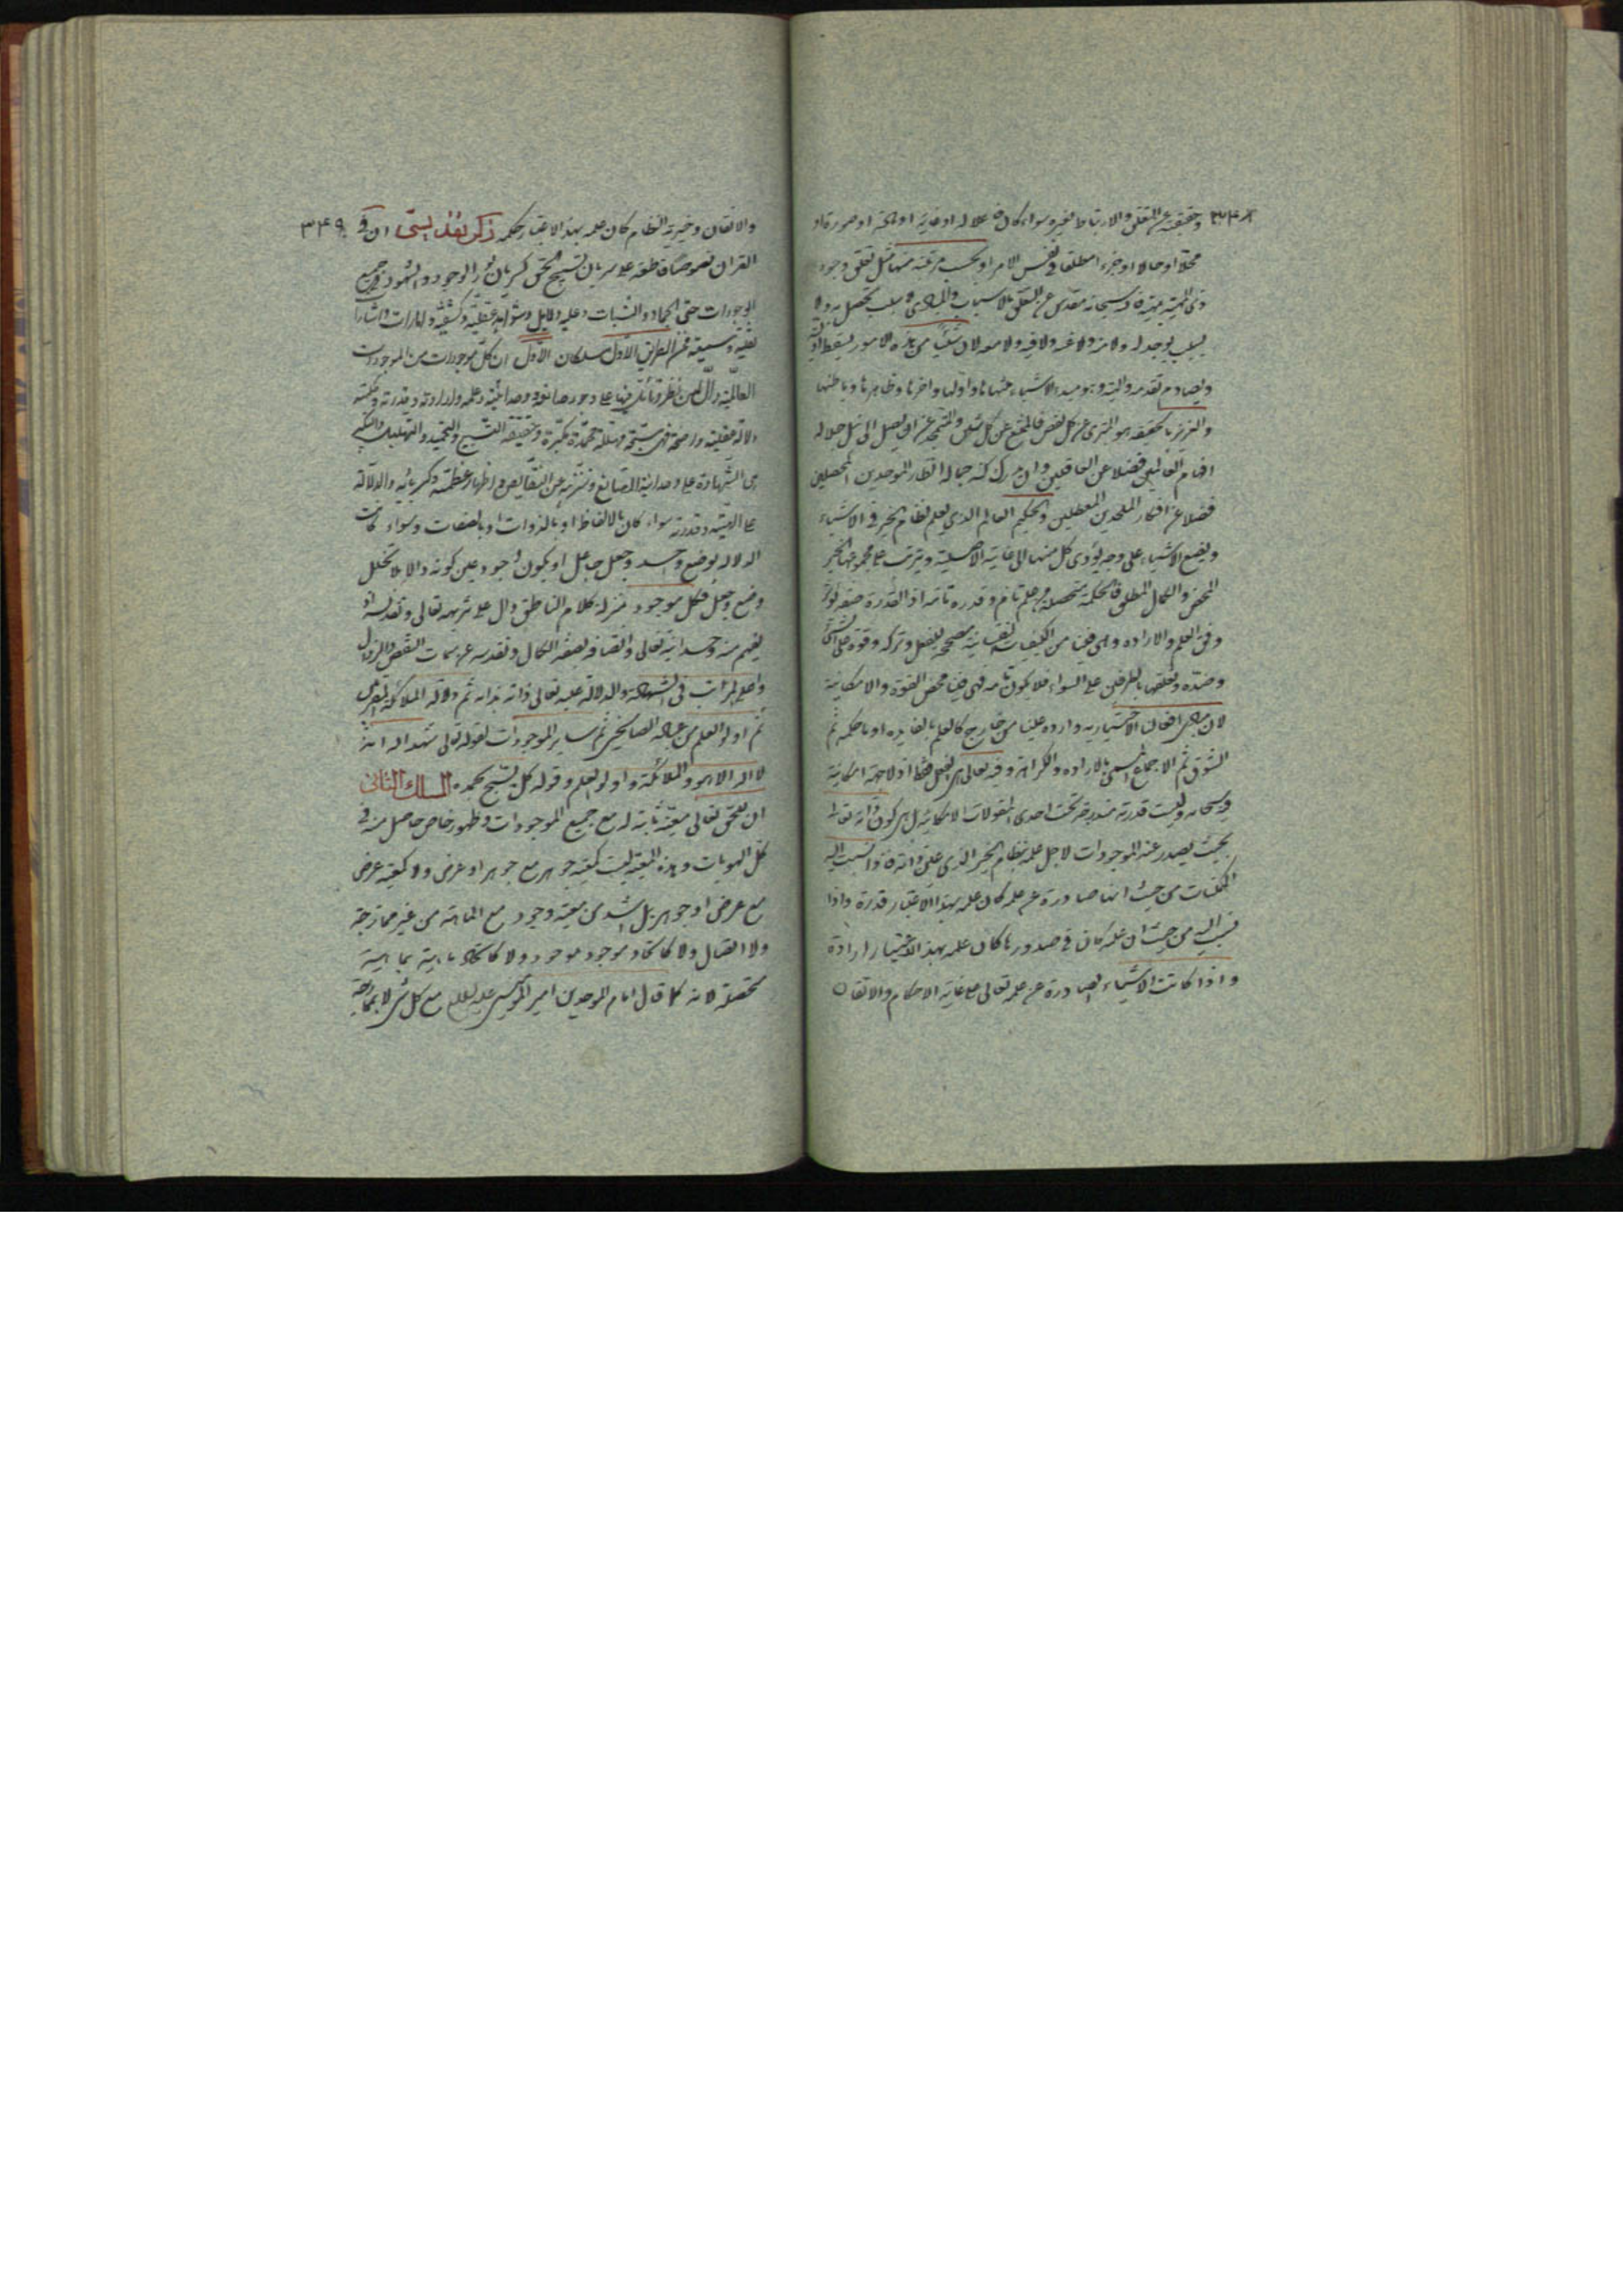 ٣٤٨ وحقيقته عن التعلق والارتباط بغيره سواء كان علاقة او غاية او مادة او صورة او
محلا او حالا او جزء مطلقا في نفس الامر او بحسب مرتبة منها مثل تعلق وجود
ذي المهية بمهيته فانه سبحانه مقدس عن التعلق بالاسباب والمبادي سبب يحصل به ولا
سبب يوجد له ولا منه ولا عنه ولا فيه ولا معه لان شيئا من هذه الامور يسقط
ويصادم تقدمه والهيته وهو مبدء الاشياء منتهاها واولها واخرها وظاهرها وباطنها
والعزيز بالحقيقة هو المتبري عن كل نقص فالممتنع عن كل شين والمتمجد عن ان يصل الى نيل جلاله
افهام العالمين فضلا عن الغافلين وان يدرك كنه جماله انظار الموحدين المحصلين
فضلا عن افكار الملحدين المعطلين والحكيم العالم الذي يعلم نظام الخير في الاشياء
ويضع الاشياء على وجه يؤدي كل منها الى غايته الاصلية ويترتب على مجموعها الخير
المحض والكمال المطلق فالحكمة متحصلة من علم تام وقدرة تامة اذ القدرة صفة تؤثر
وفق العلم والارادة وهي فينا من الكيفيات النفسانية مصححة للفعل وتركه وقوة على الشيء
وضده وتعلقها بالطرفين على السواء فلا يكون تامة فهي فينا محض القوة والامكانية
لان مبادي افعالنا الاختيارية واردة علينا من خارج كالعلم بالفايدة او ما حكمه ثم
الشوق ثم الاجماع المسمى بالارادة والكراهة وفيه تعالى هي الفعل فقط اذ لا جهة امكانية
فيه سبحانه وليست قدرته مندرجة تحت احدى المقولات الامكانية بل هي كون ذاته تعالى
بحيث يصدر عنه الموجودات لاجل علمه بنظام الخير الذي هو عين ذاته فاذا نسبت اليه
الممكنات من حيث انها صادرة عن علمه كان علمه بهذا الاعتبار قدرة واذا
نسبت اليه من حيث ان علمه كاف في صدورها كان علمه بهذا الاعتبار ارادة
واذا كانت الاشياء الصادرة عن علمه تعالى على غاية الاحكام والاتقان
والاتقان وخيرية النظام كان علمه بهذا الاعتبار حكمة ذكر ان في ٣٤٩
القران نصوصا قاطعة على سريان تسبيح الحق كسريان نور الوجود والشهود في جميع
الموجودات حتى الجماد والنبات وعليه دلايل وشواهد عقلية وكشفية وامارات واشارات
نقلية وسمعية فمن الطريق الاول مسلكان الاول ان كل موجود من الموجودات
العالمية دال لمن نظر وتأمل فيها على وجود صانعه ووحدانيته وعلمه وارادته وقدرته وحكمته
دلالة عقلية واضحة فهي مسبحة ومهللة محمدة مكبرة وحقيقة التسبيح والتحميد والتهليل والتكبير
هي الشهادة على وحدانية الصانع وتنزيهه عن النقايص واظهار عظمته وكبريائه والدلالة
على الهيته وقدرته سواء كان بالالفاظ او بالذوات او بالصفات وسواء كانت
الدلالة بوضع واحد وجعل جاعل او يكون وجوده عين كونه دالا بلا تخلل
وضع وجعل فكل موجود بمنزلة كلام الناطق دال على تنزيهه تعالى وتقديسه اذ
يفهم منه وحدانيته تعالى واتصافه بصفة الكمال وتقدسه عن سمات النقص والزوال
واعلى المراتب في الشهادة والدلالة عليه تعالى ذاته بذاته ثم دلالة الملائكة المقربين
ثم اولو العلم من عباده الصالحين ثم ساير الموجودات لقوله تعالى شهد الله انه
لا اله الا هو والملائكة واولو العلم وقوله كل يسبح بحمده المسلك الثاني
ان للحق تعالى معية ثابتة له مع جميع الموجودات وظهور خاص حاصل منه في
كل الهويات وهذه المعية ليست كمعية جوهر مع جوهر او عرض ولا كمعية عرض
مع عرض او جوهر بل اشد من معية وجود مع الماهية من غير ممازجة
ولا اتصال ولا كاتحاد موجود بموجود ولا كاتحاد ماهية بماهية
متحصلة لانه كما قال امام الموحدين امير المؤمنين عليه السلام مع كل شيء لا بممازجة